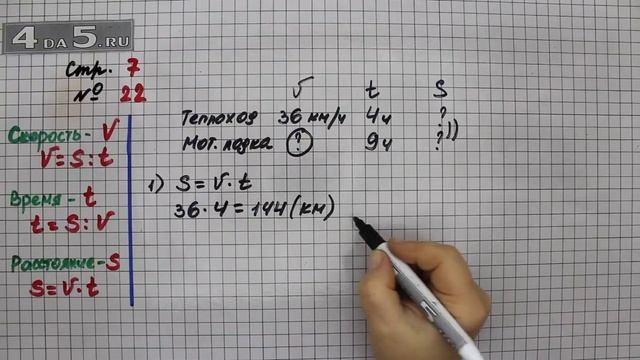 4DA5.RU
Стр. 7
№ 22
Скорость - V
V = S : t
Время - t
t = S : V
Расстояние - S
S = V · t
V t S
Теплоход 36 км/ч 4ч ?
Мот. лодка ? 9ч ?
1) S = V · t
36 · 4 = 144 (км)